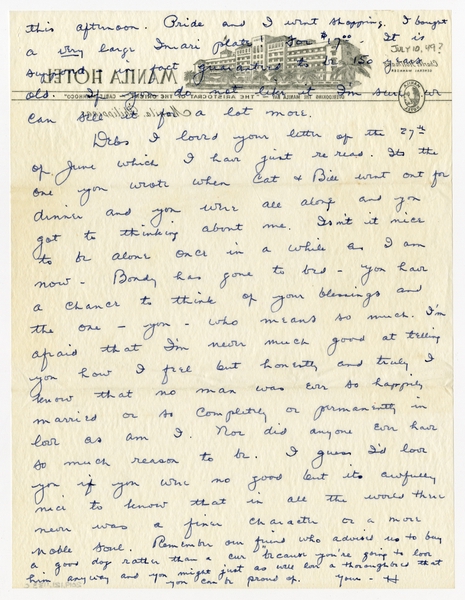 this afternoon. Pride and I went shopping. I bought
a very large Imari plate! For $ It is
JULY 10, 49?
supposed - in fact guaranteed to be 150 years
MANILA HOTEL
old. If you do not like it I'm sure we
THE ARISTOCRAT
can sell it for a lot more.
Debs I loved your letter of the 27th
of June which I have just re read. Its the
one you wrote when Cat & Bill went out for
dinner and you were all alone and you
got to thinking about me. Isn't it nice
to be alone once in a while as I am
now - Bondy has gone to bed - you have
a chance to think of your blessings and
the one - you - who means so much. I'm
afraid that I'm never much good at telling
you how I feel but honestly and truly I
know that no man was ever so happily
married or so completely or permanently in
love as am I. Nor did anyone ever have
so much reason to be. I guess I'd love
you if you were no good but its awfully
nice to know that in all the world there
never was a finer character or a more
noble soul. Remember our friend who advised us to buy
a good dog rather than a cur "because you're going to love
him anyway and you might just as well love a thoroughbred that
you can be proud of. yours - H